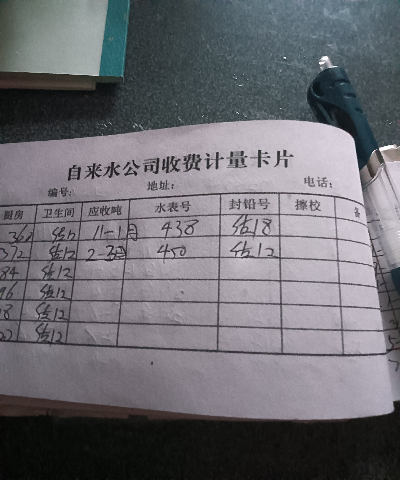 自来水公司收费计量卡片
编号: 地址: 电话:
厨房 卫生间 应收吨 水表号 封铅号 擦校
360 结12 11-1月 438 结18
372 结12 2-3月 450 结12
84 结12
96 结12
08 结12
结12